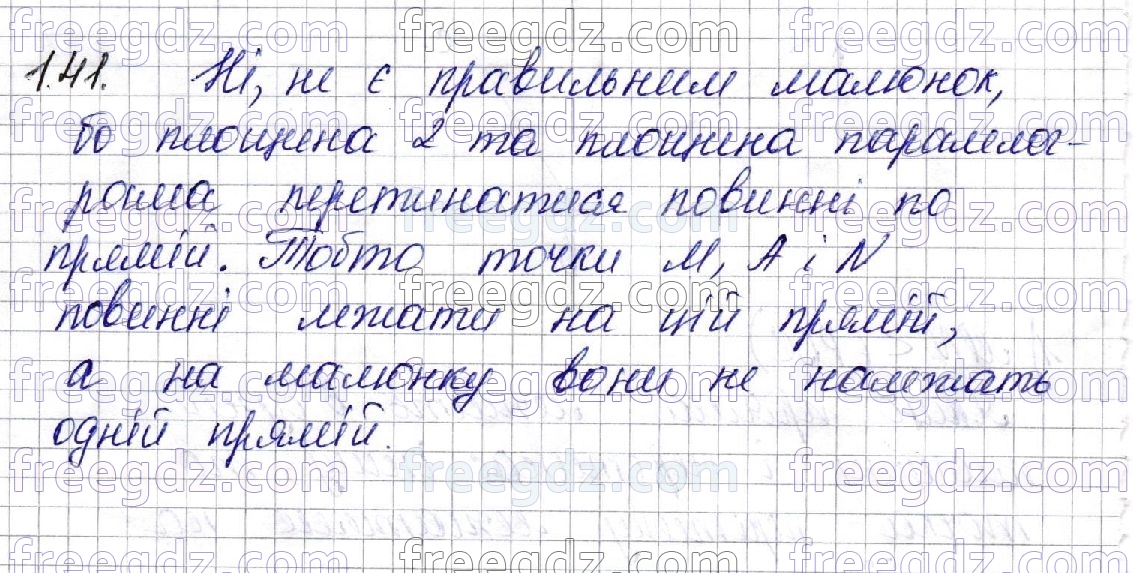 1.41. Ні, не є правильним малюнок,
бо площина 2 та площина паралелог-
рама перетинатися повинні по
прямій. Тобто точки M, A і N
повинні лежати на цій прямій,
а на малюнку вони не належать
одній прямій.
freegdz.com